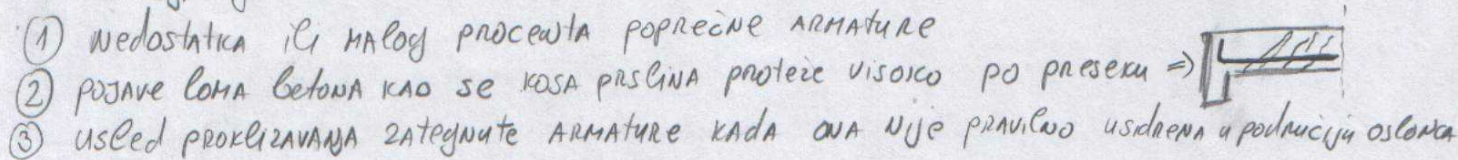 ① Nedostatka ili malog procenta poprečne armature
② pojave loma betona kao se kosa prslina proteže visoko po preseku =>
③ usled proklizavanja zategnute armature kada ona nije pravilno usidrena u području oslonca